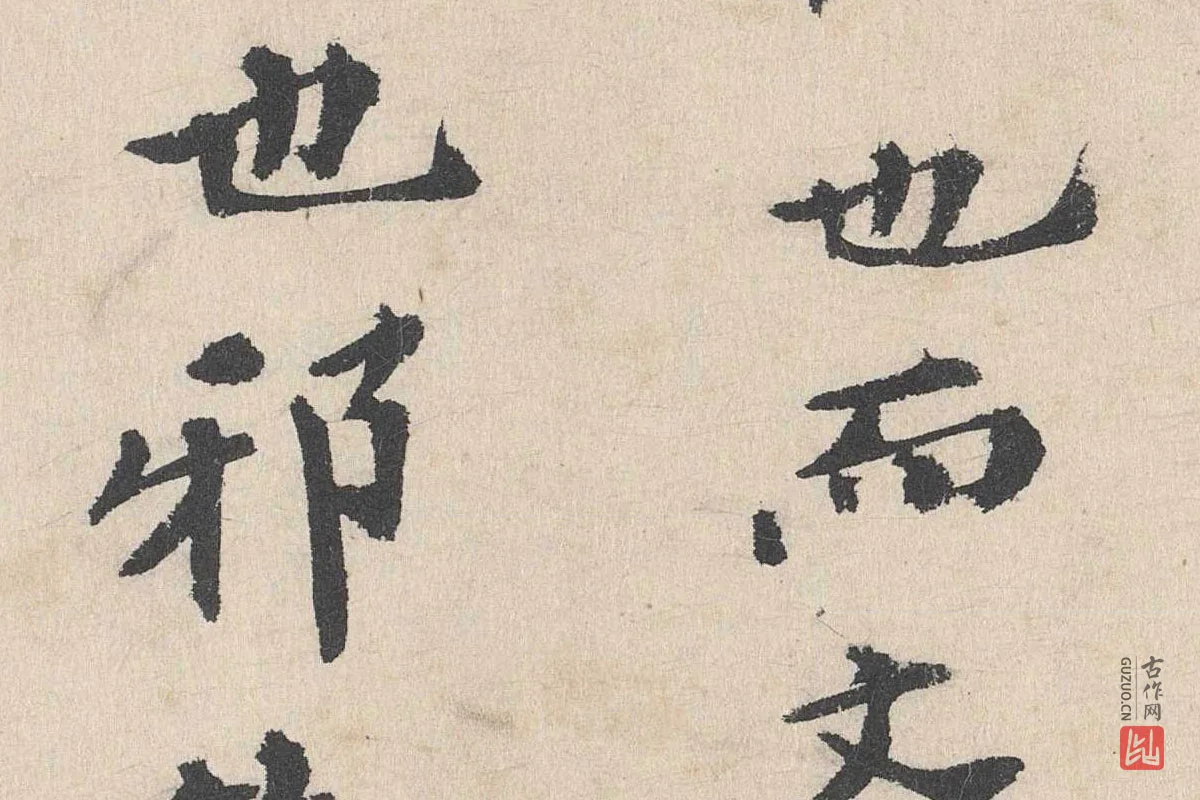 也而
也邪
古作网
GUZUO.CN